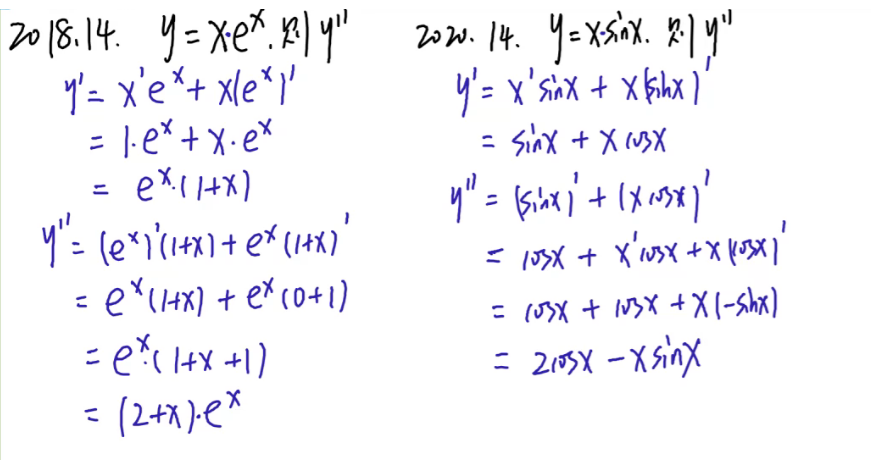 2018.14. y=x·eˣ. 求y''
y'= x'eˣ+ x(eˣ)'
= 1·eˣ + x·eˣ
= eˣ·(1+x)
y''= (eˣ)'(1+x)+ eˣ(1+x)'
= eˣ(1+x) + eˣ(0+1)
= eˣ·(1+x+1)
= (2+x)·eˣ
2020. 14. y=x·sinx. 求y''
y'= x'sinx + x(sinx)'
= sinx + xcosx
y''= (sinx)' + (xcosx)'
= cosx + x'cosx + x(cosx)'
= cosx + cosx + x(-sinx)
= 2cosx - xsinx